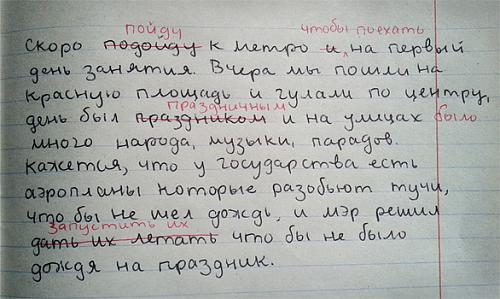 пойду чтобы поехать
Скоро подойду к метро и, на первый
день занятия. Вчера мы пошли на
красную площадь и гулали по центру,
праздничным
день был праздником и на улицах было
много народа, музыки, парадов.
Кажется, что у государства есть
аэропланы которые разобьют тучи,
что бы не шел дождь, и мэр решил
запустить их
дать их летать что бы не было
дождя на праздник.